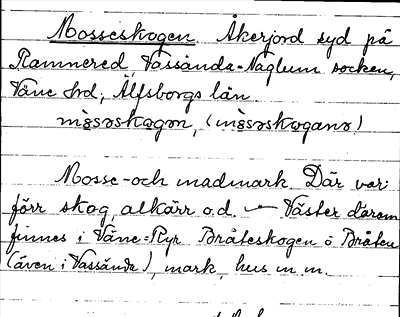 Mosseskogen. Åkerjord syd på
Ramnered, Vassända-Naglum socken,
Väne hd, Älfsborgs län.
mòsəskogən, (mòsəskoganə)
Mosse- och madmark Där var
förr skog, alkärr o.d. — Väster därom
finnes i Väne-Ryr Bråteskogen ö Bråten
(även i Vassända), mark, hus m m.